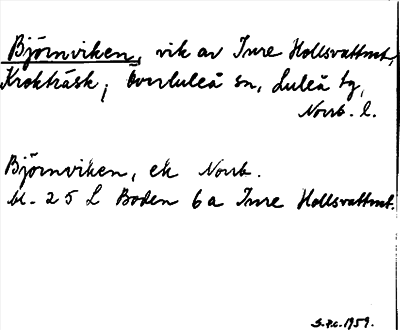 Björnviken, vik av Inre Hollsvattnet,
Krokträsk, Överluleå sn, Luleå tg,
Norrb. l.
Björnviken, ek Norrb.
bl. 25 L Boden 6a Inre Hollsvattnet.
S.P.c. 1959.